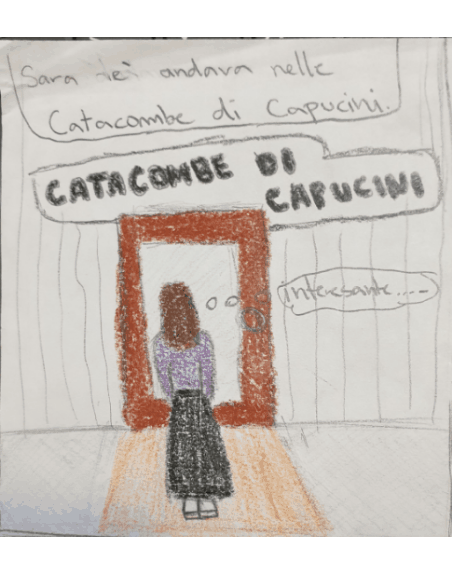 Sara lei andava nelle
Catacombe di Capucini.
CATACOMBE DI
CAPUCINI
interesante....